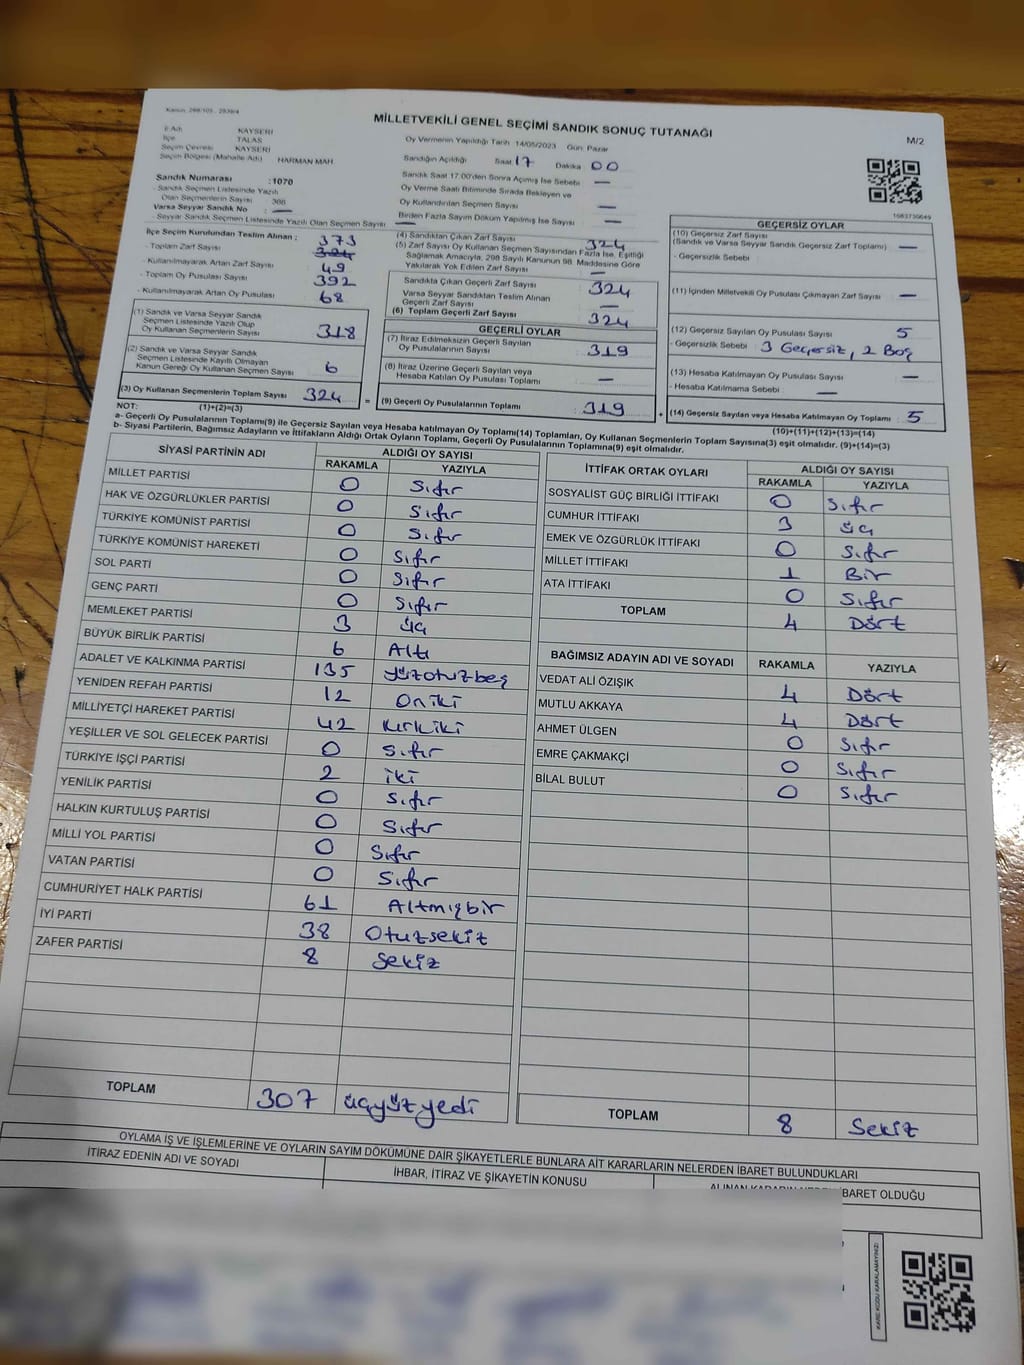 Kanun: 298/105 , 2839/4
MİLLETVEKİLİ GENEL SEÇİMİ SANDIK SONUÇ TUTANAĞI
M/2
İl Adı KAYSERİ
İlçe TALAS
Seçim Çevresi KAYSERİ
Seçim Bölgesi (Mahalle Adı) HARMAN MAH
Sandık Numarası :1070
- Sandık Seçmen Listesinde Yazılı
Olan Seçmenlerin Sayısı 366
Varsa Seyyar Sandık No : —
- Seyyar Sandık Seçmen Listesinde Yazılı Olan Seçmen Sayısı —
Oy Vermenin Yapıldığı Tarih 14/05/2023 Gün: Pazar
Sandığın Açıldığı Saat 17 Dakika 00
Sandık Saat 17.00'den Sonra Açılmış İse Sebebi —
Oy Verme Saati Bitiminde Sırada Bekleyen ve
Oy Kullandırılan Seçmen Sayısı —
Birden Fazla Sayım Döküm Yapılmış İse Sayısı —
1683730649
İlçe Seçim Kurulundan Teslim Alınan : 373
- Toplam Zarf Sayısı 324
- Kullanılmayarak Artan Zarf Sayısı 49
- Toplam Oy Pusulası Sayısı 392
- Kullanılmayarak Artan Oy Pusulası 68
(1) Sandık ve Varsa Seyyar Sandık
Seçmen Listesinde Yazılı Olup
Oy Kullanan Seçmenlerin Sayısı 318
(2) Sandık ve Varsa Seyyar Sandık
Seçmen Listesinde Kayıtlı Olmayan
Kanun Gereği Oy Kullanan Seçmen Sayısı 6
(3) Oy Kullanan Seçmenlerin Toplam Sayısı 324
(1)+(2)=(3)
(4) Sandıktan Çıkan Zarf Sayısı 324
(5) Zarf Sayısı Oy Kullanan Seçmen Sayısından Fazla İse, Eşitliği
Sağlamak Amacıyla, 298 Sayılı Kanunun 98. Maddesine Göre
Yakılarak Yok Edilen Zarf Sayısı —
Sandıkta Çıkan Geçerli Zarf Sayısı 324
Varsa Seyyar Sandıktan Teslim Alınan
Geçerli Zarf Sayısı —
(6) Toplam Geçerli Zarf Sayısı 324
GEÇERLİ OYLAR
(7) İtiraz Edilmeksizin Geçerli Sayılan
Oy Pusulalarının Sayısı 319
(8) İtiraz Üzerine Geçerli Sayılan veya
Hesaba Katılan Oy Pusulası Toplamı —
= (9) Geçerli Oy Pusulalarının Toplamı 319 +
GEÇERSİZ OYLAR
(10) Geçersiz Zarf Sayısı
(Sandık ve Varsa Seyyar Sandık Geçersiz Zarf Toplamı) —
- Geçersizlik Sebebi
(11) İçinden Milletvekili Oy Pusulası Çıkmayan Zarf Sayısı —
(12) Geçersiz Sayılan Oy Pusulası Sayısı 5
- Geçersizlik Sebebi : 3 Geçersiz, 2 Boş
(13) Hesaba Katılmayan Oy Pusulası Sayısı —
- Hesaba Katılmama Sebebi —
(14) Geçersiz Sayılan veya Hesaba Katılmayan Oy Toplamı : 5
(10)+(11)+(12)+(13)=(14)
NOT:
a- Geçerli Oy Pusulalarının Toplamı(9) ile Geçersiz Sayılan veya Hesaba katılmayan Oy Toplamı(14) Toplamları, Oy Kullanan Seçmenlerin Toplam Sayısına(3) eşit olmalıdır. (9)+(14)=(3)
b- Siyasi Partilerin, Bağımsız Adayların ve İttifakların Aldığı Ortak Oyların Toplamı, Geçerli Oy Pusulalarının Toplamına(9) eşit olmalıdır.
SİYASİ PARTİNİN ADI ALDIĞI OY SAYISI
RAKAMLA YAZIYLA
MİLLET PARTİSİ 0 Sıfır
HAK VE ÖZGÜRLÜKLER PARTİSİ 0 Sıfır
TÜRKİYE KOMÜNİST PARTİSİ 0 Sıfır
TÜRKİYE KOMÜNİST HAREKETİ 0 Sıfır
SOL PARTİ 0 Sıfır
GENÇ PARTİ 0 Sıfır
MEMLEKET PARTİSİ 3 üç
BÜYÜK BİRLİK PARTİSİ 6 Altı
ADALET VE KALKINMA PARTİSİ 135 yüzotuzbeş
YENİDEN REFAH PARTİSİ 12 Oniki
MİLLİYETÇİ HAREKET PARTİSİ 42 Kırkiki
YEŞİLLER VE SOL GELECEK PARTİSİ 0 Sıfır
TÜRKİYE İŞÇİ PARTİSİ 2 iki
YENİLİK PARTİSİ 0 Sıfır
HALKIN KURTULUŞ PARTİSİ 0 Sıfır
MİLLİ YOL PARTİSİ 0 Sıfır
VATAN PARTİSİ 0 Sıfır
CUMHURİYET HALK PARTİSİ 61 Altmışbir
İYİ PARTİ 38 Otuzsekiz
ZAFER PARTİSİ 8 Sekiz
TOPLAM 307 üçyüzyedi
İTTİFAK ORTAK OYLARI ALDIĞI OY SAYISI
RAKAMLA YAZIYLA
SOSYALİST GÜÇ BİRLİĞİ İTTİFAKI 0 Sıfır
CUMHUR İTTİFAKI 3 üç
EMEK VE ÖZGÜRLÜK İTTİFAKI 0 Sıfır
MİLLET İTTİFAKI 1 Bir
ATA İTTİFAKI 0 Sıfır
TOPLAM 4 Dört
BAĞIMSIZ ADAYIN ADI VE SOYADI RAKAMLA YAZIYLA
VEDAT ALİ ÖZIŞIK 4 Dört
MUTLU AKKAYA 4 Dört
AHMET ÜLGEN 0 Sıfır
EMRE ÇAKMAKÇİ 0 Sıfır
BİLAL BULUT 0 Sıfır
TOPLAM 8 Sekiz
OYLAMA İŞ VE İŞLEMLERİNE VE OYLARIN SAYIM DÖKÜMÜNE DAİR ŞİKAYETLERLE BUNLARA AİT KARARLARIN NELERDEN İBARET BULUNDUKLARI
İTİRAZ EDENİN ADI VE SOYADI
İHBAR, İTİRAZ VE ŞİKAYETİN KONUSU
ALINAN KARARIN NEDEN İBARET OLDUĞU
KARE KODU KARALAMAYINIZ!